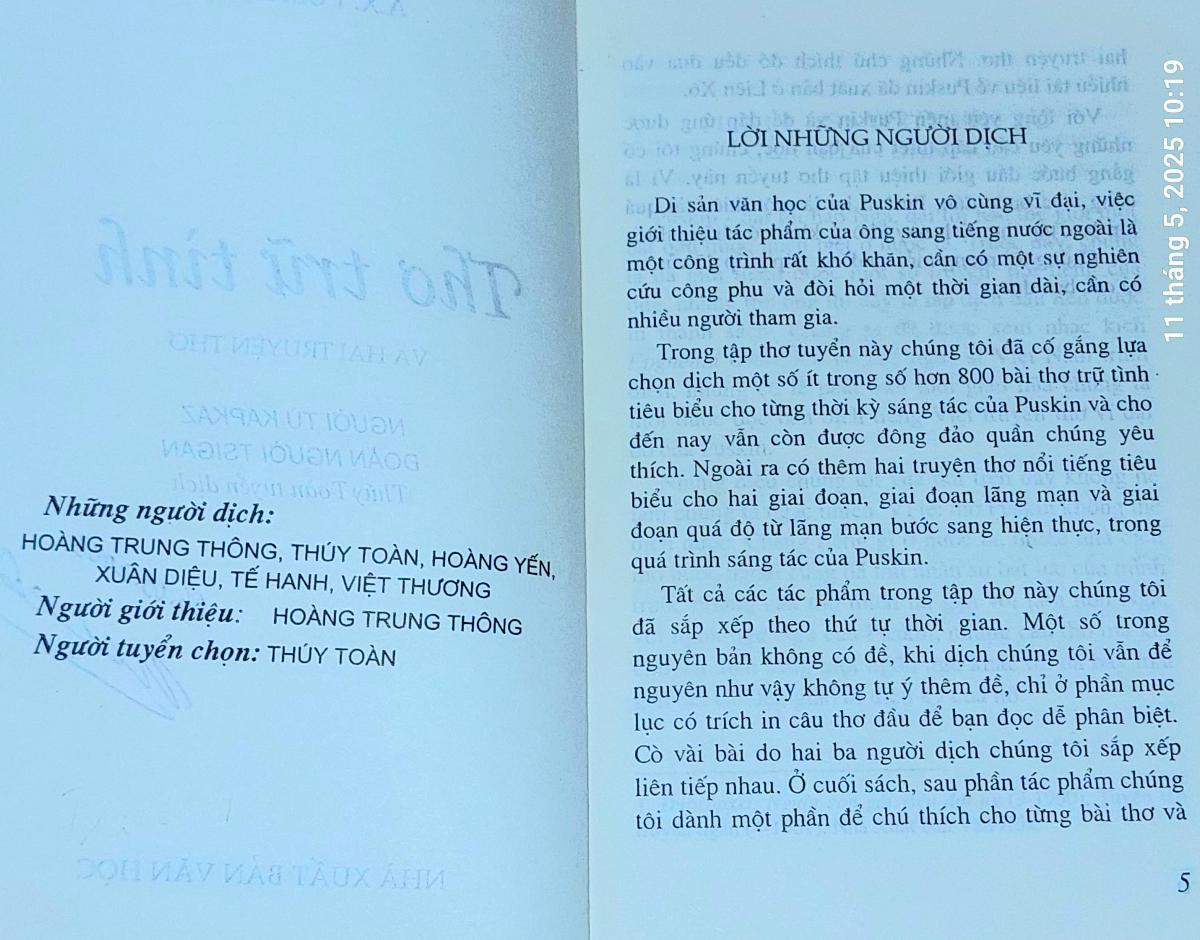 Những người dịch:
HOÀNG TRUNG THÔNG, THÚY TOÀN, HOÀNG YẾN,
XUÂN DIỆU, TẾ HANH, VIỆT THƯƠNG
Người giới thiệu: HOÀNG TRUNG THÔNG
Người tuyển chọn: THÚY TOÀN
Thơ trữ tình
VÀ HAI TRUYỆN THƠ
NGƯỜI TÙ KAPKAZ
ĐOÀN NGƯỜI TSIGAN
Thúy Toàn tuyển dịch
NHÀ XUẤT BẢN VĂN HỌC
LỜI NHỮNG NGƯỜI DỊCH
Di sản văn học của Puskin vô cùng vĩ đại, việc
giới thiệu tác phẩm của ông sang tiếng nước ngoài là
một công trình rất khó khăn, cần có một sự nghiên
cứu công phu và đòi hỏi một thời gian dài, cần có
nhiều người tham gia.
Trong tập thơ tuyển này chúng tôi đã cố gắng lựa
chọn dịch một số ít trong số hơn 800 bài thơ trữ tình
tiêu biểu cho từng thời kỳ sáng tác của Puskin và cho
đến nay vẫn còn được đông đảo quần chúng yêu
thích. Ngoài ra có thêm hai truyện thơ nổi tiếng tiêu
biểu cho hai giai đoạn, giai đoạn lãng mạn và giai
đoạn quá độ từ lãng mạn bước sang hiện thực, trong
quá trình sáng tác của Puskin.
Tất cả các tác phẩm trong tập thơ này chúng tôi
đã sắp xếp theo thứ tự thời gian. Một số trong
nguyên bản không có đề, khi dịch chúng tôi vẫn để
nguyên như vậy không tự ý thêm đề, chỉ ở phần mục
lục có trích in câu thơ đầu để bạn đọc dễ phân biệt.
Cò vài bài do hai ba người dịch chúng tôi sắp xếp
liên tiếp nhau. Ở cuối sách, sau phần tác phẩm chúng
tôi dành một phần để chú thích cho từng bài thơ và
5
11 tháng 5, 2025 10:19